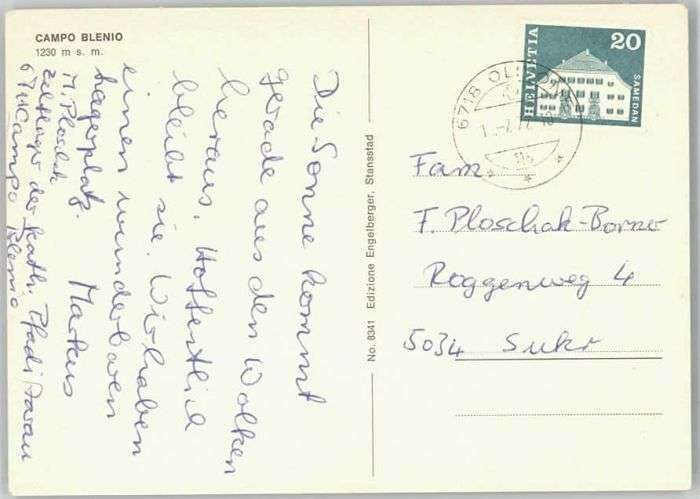 CAMPO BLENIO
1230 m s. m.
Die Sonne kommt
gerade aus den Wolken
heraus. Hoffentlich
bleibt sie. Wir haben
einen wunderbaren
Lagerplatz.
Markus
M. Ploschak
Zeltlager der kath. Pfadi Aarau
6711 Campo Blenio
No. 8341 Edizione Engelberger, Stansstad
HELVETIA
20
SAMEDAN
6718 OLIVONE
Fam
F. Ploschak-Borner
Roggenweg 4
5034 Suhr